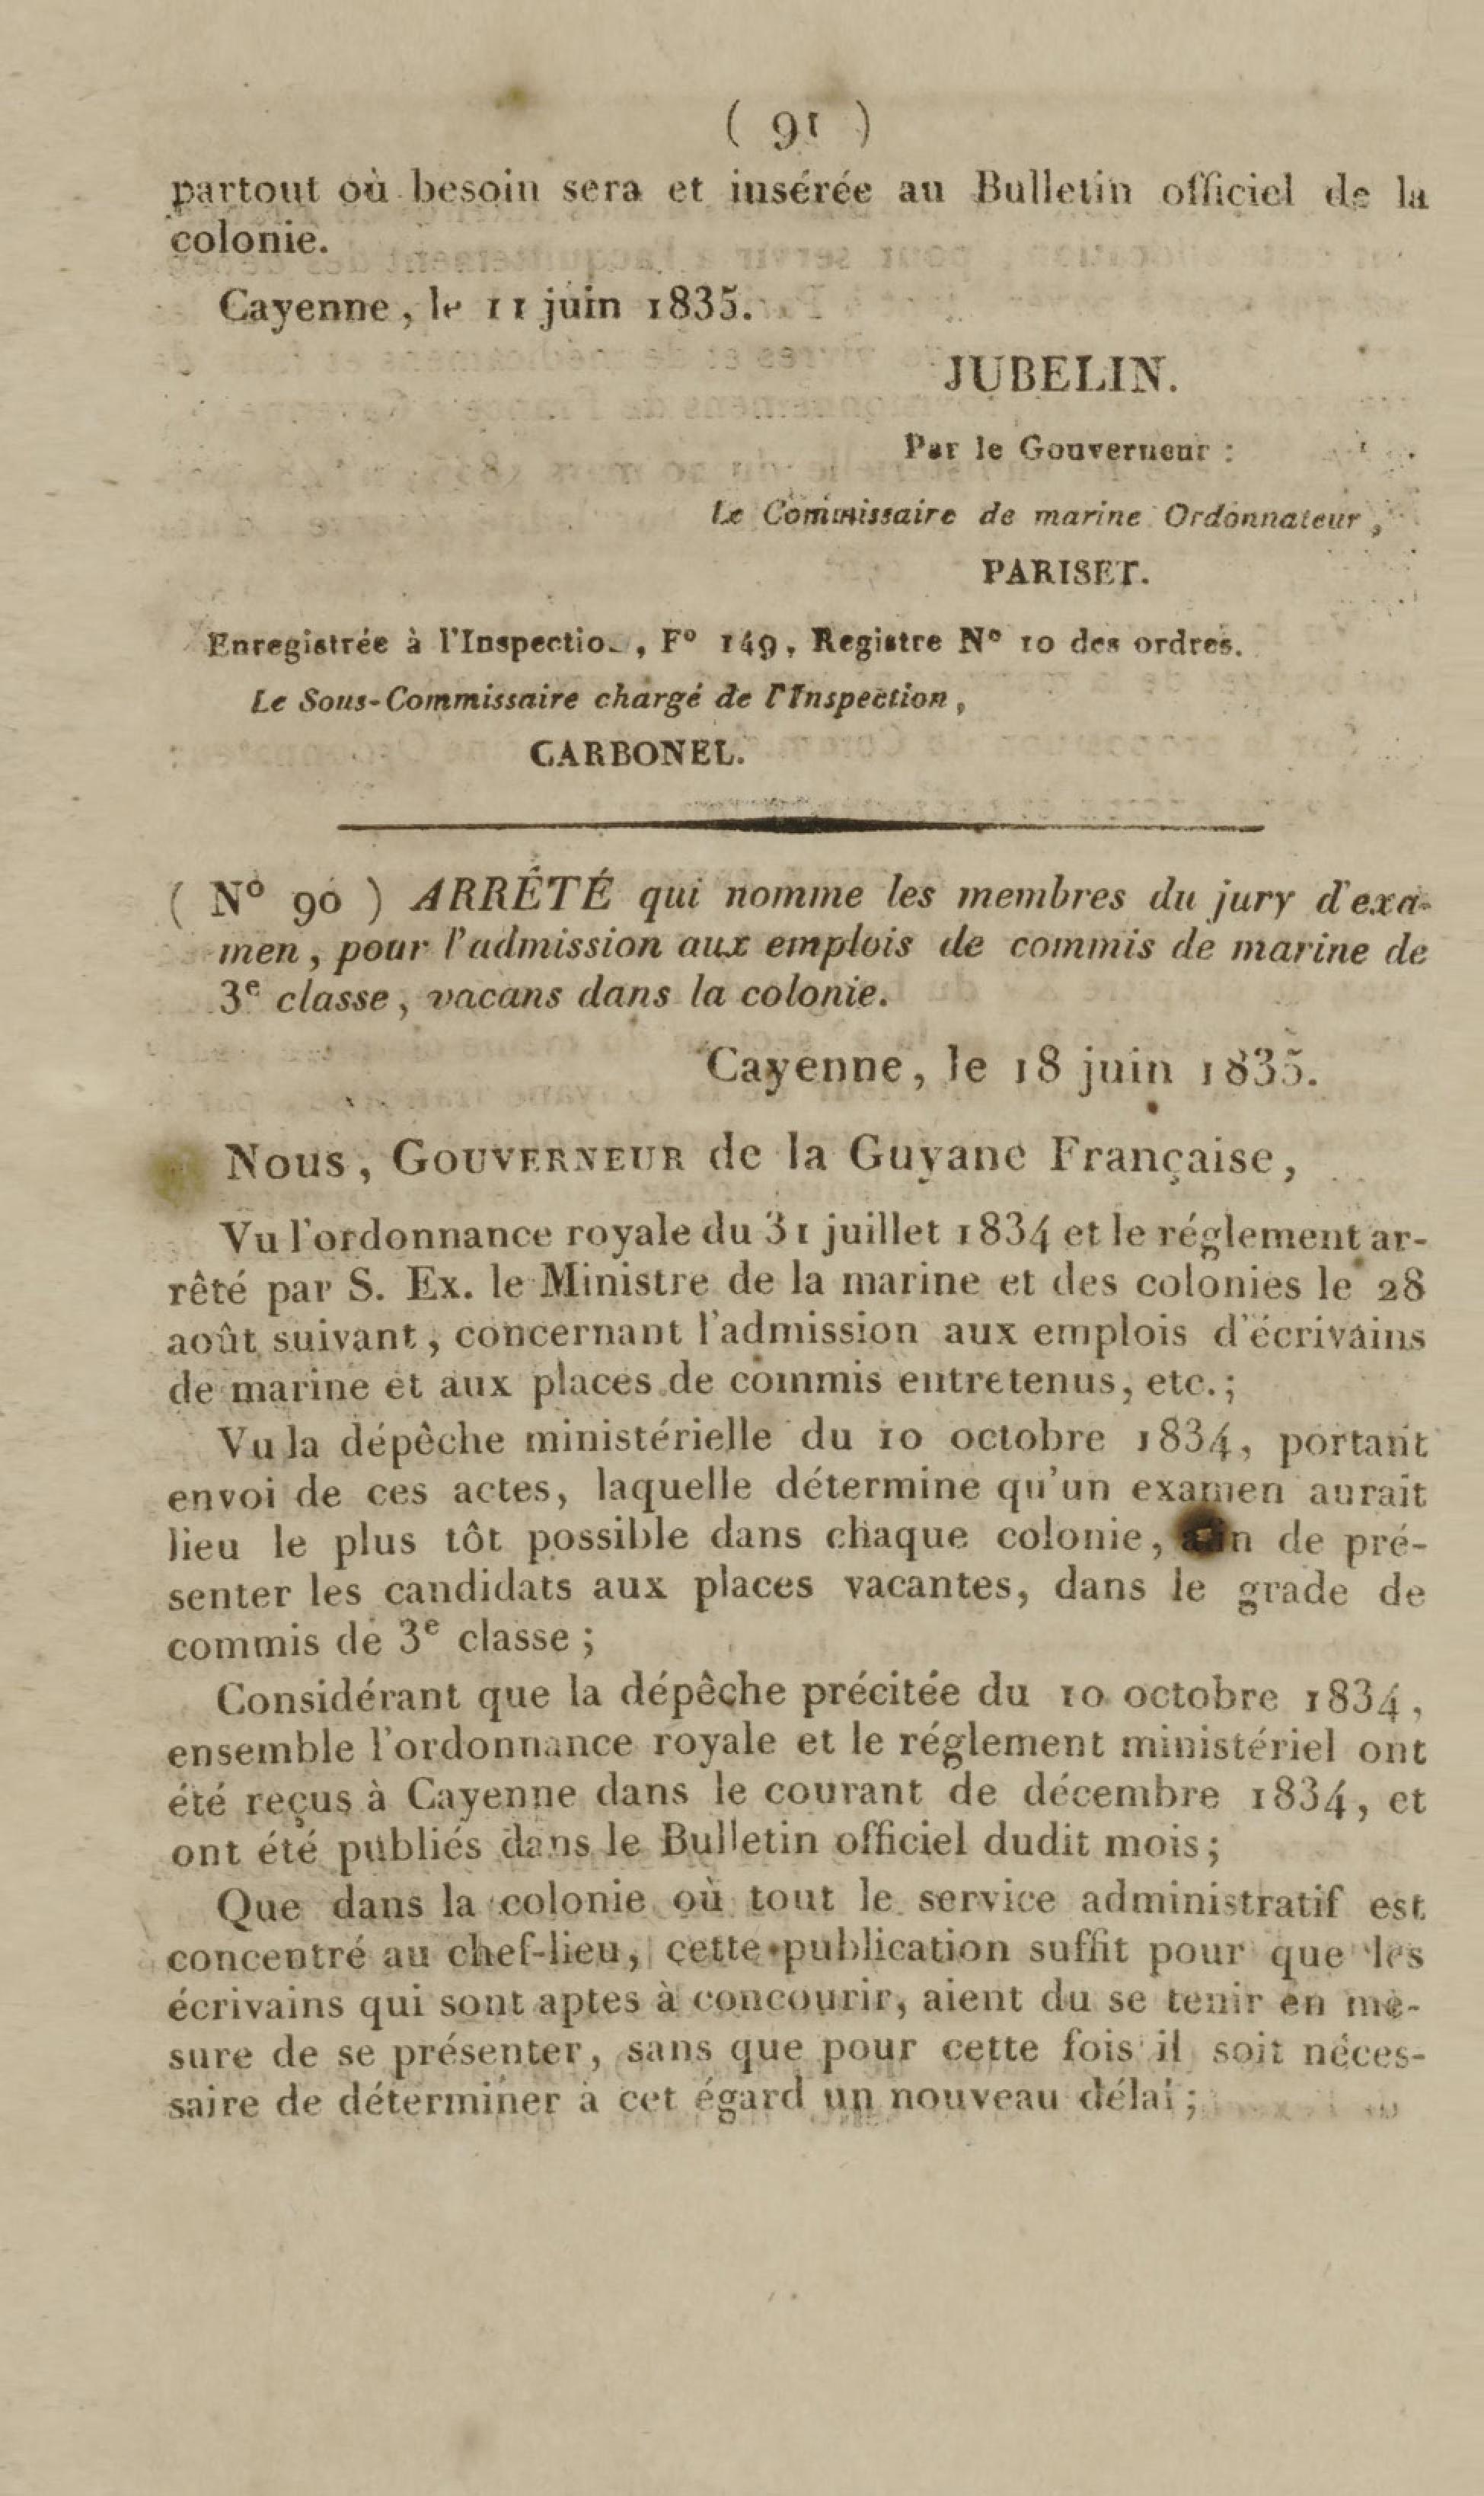 ( 91 )
partout où besoin sera et insérée au Bulletin officiel de la
colonie.
Cayenne, le 11 juin 1835.
JUBELIN.
Par le Gouverneur :
Le Commissaire de marine Ordonnateur,
PARISET.
Enregistrée à l'Inspectio , F° 149, Registre N° 10 des ordres.
Le Sous-Commissaire chargé de l'Inspection,
CARBONEL.
( N° 90 ) ARRÊTÉ qui nomme les membres du jury d'exa-
men, pour l'admission aux emplois de commis de marine de
3e classe, vacans dans la colonie.
Cayenne, le 18 juin 1835.
Nous, GOUVERNEUR de la Guyane Française,
Vu l'ordonnance royale du 31 juillet 1834 et le réglement ar-
rêté par S. Ex. le Ministre de la marine et des colonies le 28
août suivant, concernant l'admission aux emplois d'écrivains
de marine et aux places de commis entretenus, etc.;
Vu la dépêche ministérielle du 10 octobre 1834, portant
envoi de ces actes, laquelle détermine qu'un examen aurait
lieu le plus tôt possible dans chaque colonie, de pré-
senter les candidats aux places vacantes, dans le grade de
commis de 3e classe;
Considérant que la dépêche précitée du 10 octobre 1834,
ensemble l'ordonnance royale et le réglement ministériel ont
été reçus à Cayenne dans le courant de décembre 1834, et
ont été publiés dans le Bulletin officiel dudit mois;
Que dans la colonie où tout le service administratif est
concentré au chef-lieu, cette publication suffit pour que les
écrivains qui sont aptes à concourir, aient du se tenir en me-
sure de se présenter, sans que pour cette fois il soit néces-
saire de déterminer à cet égard un nouveau délai;